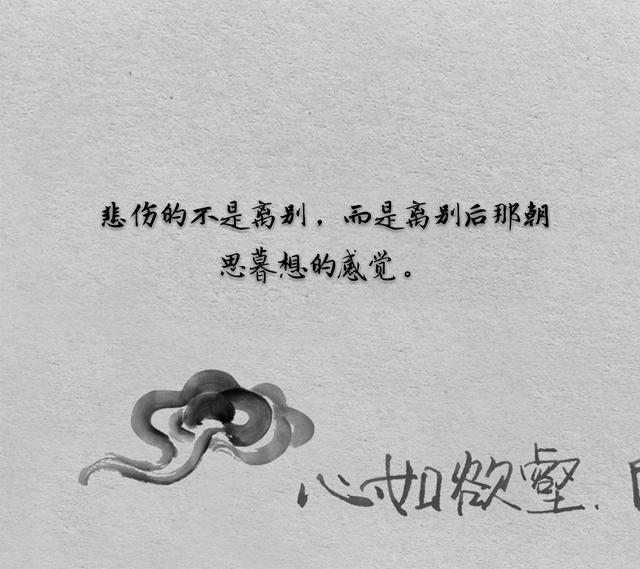 悲伤的不是离别，而是离别后那朝
思暮想的感觉。
心如欲壑.